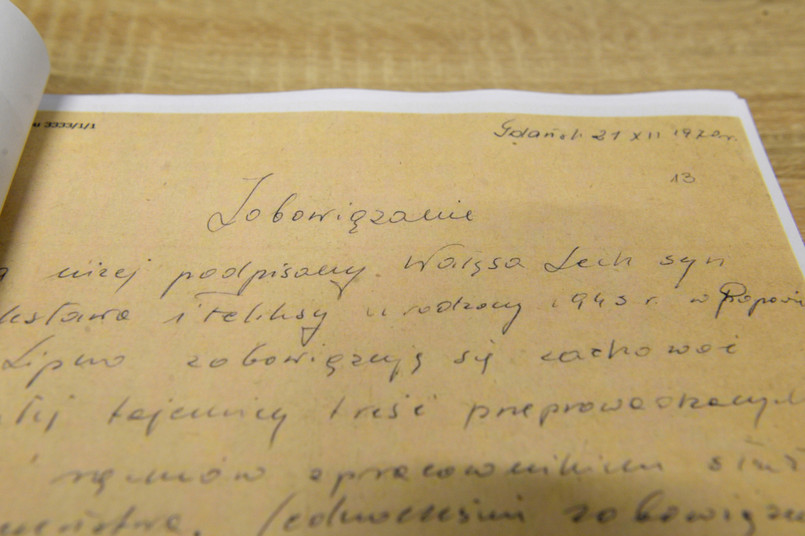 3333/1/1
Gdańsk 21 XII 1970 r.
13
Zobowiązanie
niżej podpisany Wałęsa Lech syn
i Feliksy urodzony 1943 r. w Popowi
Lipno zobowiązuję się zachować
tajemnicy treść przeprowadzonych
z pracownikiem służ
Jednocześnie zobowiązu